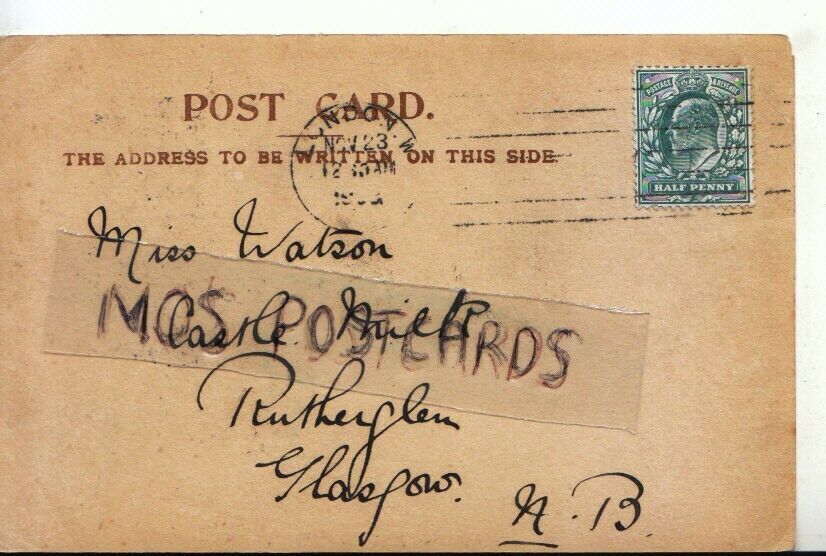 POST CARD.
THE ADDRESS TO BE WRITTEN ON THIS SIDE.
LONDON W
NOV 23
12 AM
POSTAGE & REVENUE
HALF PENNY
Miss Watson
MCS POSTCARDS
Castle Milk
Rutherglen
Glasgow.
N.B.